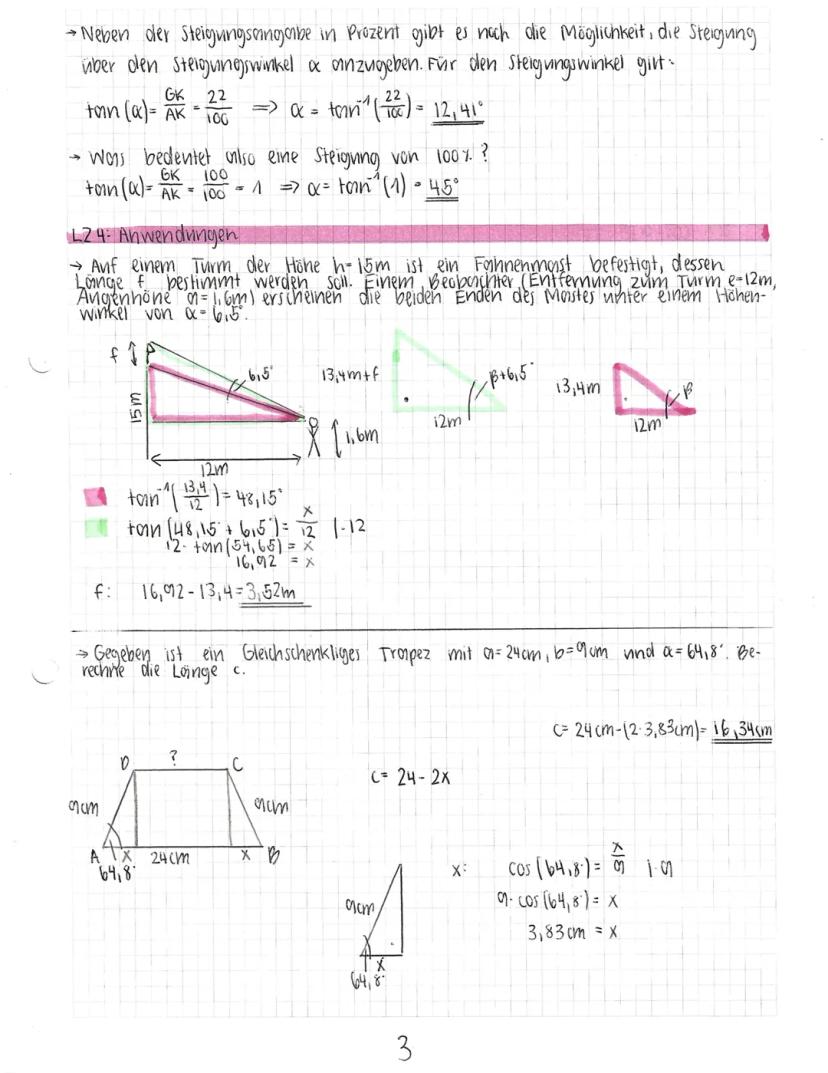 → Neben der Steigungsangabe in Prozent gibt es noch die Möglichkeit, die Steigung
über den Steigungswinkel α anzugeben. Für den Steigungswinkel gilt:
tan (α) = GK/AK = 22/100 ⇒ α = tan⁻¹(22/100) = 12,41°
→ Was bedeutet also eine Steigung von 100%?
tan(α) = GK/AK = 100/100 = 1 ⇒ α = tan⁻¹(1) = 45°
LZ 4: Anwendungen
→ Auf einem Turm der Höhe h=15m ist ein Fahnenmast befestigt, dessen
Länge f bestimmt werden soll. Einem Beobachter (Entfernung zum Turm e=12m,
Augenhöhe a=1,6m) erscheinen die beiden Enden des Mastes unter einem Höhen-
winkel von α=6,5°.
f
6,5°
15m
1,6m
12m
13,4m+f
β+6,5°
12m
13,4m
β
12m
tan⁻¹(13,4/12) = 48,15°
tan (48,15 + 6,5°) = x/12 |·12
12· tan(54,65) = x
16,92 = x
f: 16,92 - 13,4 = 3,52m
→ Gegeben ist ein Gleichschenkliges Trapez mit a=24cm, b=9cm und α=64,8°. Be-
rechne die Länge c.
c= 24cm-(2·3,83cm)= 16,34cm
D ? C
9cm 9cm
A x 24cm x B
64,8°
c= 24-2x
9cm
x
64,8°
x: cos(64,8°) = x/9 |·9
9·cos(64,8°) = x
3,83cm = x
3